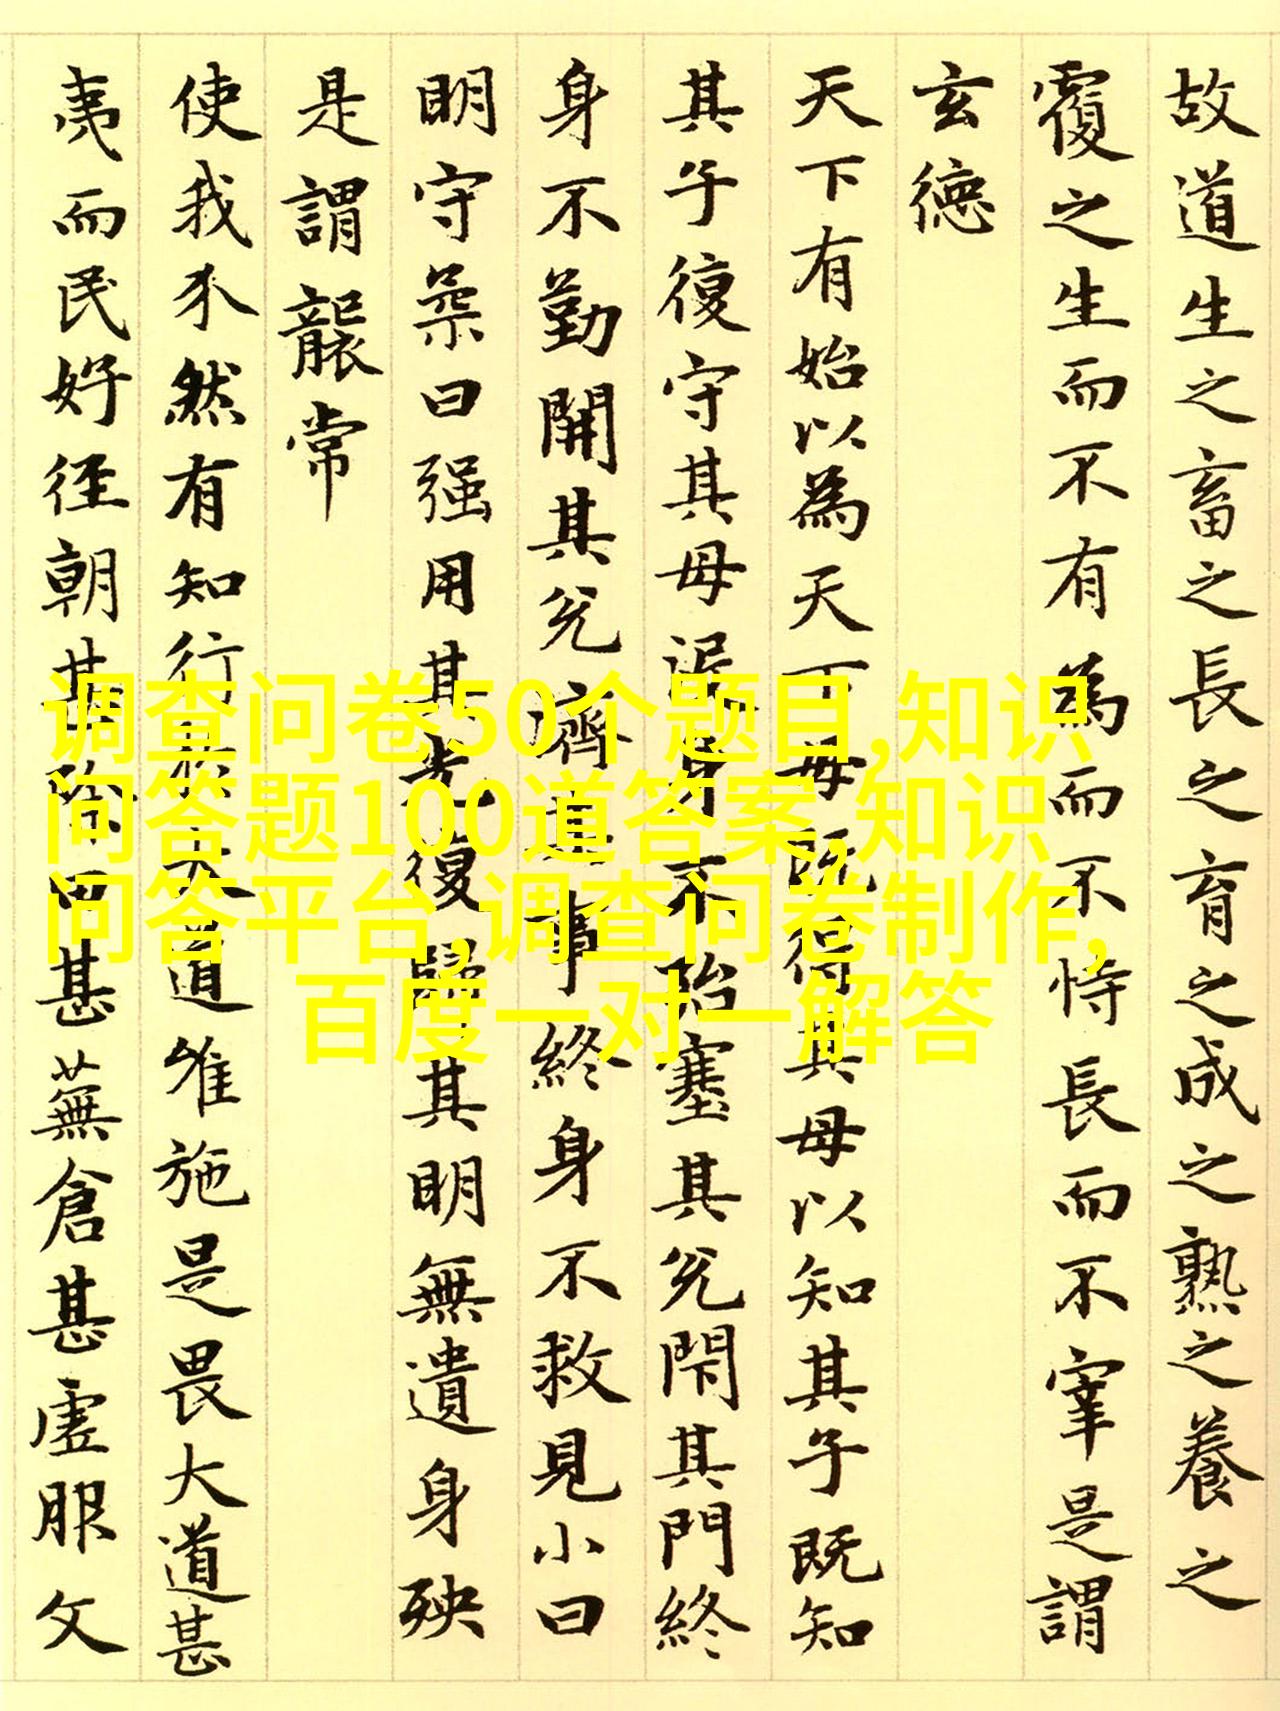 故道生之畜之長之育之成之熟之養之
覆之生而不有為而不恃長而不宰是謂
玄德
天下有始以為天下母既得其母以知其子既知
其子復守其母没身不殆塞其兌閇其門終
身不勤開其兌濟其事終身不救見小曰
明守柔曰强用其光復歸其明無遺身殃
是謂襲常
使我介然有知行於大道唯施是畏大道甚
夷而民好徑朝甚除田甚蕪倉甚虛服文
调查问卷50个题目,知识
问答题100道答案,知识
问答平台,调查问卷制作,
百度一对一解答